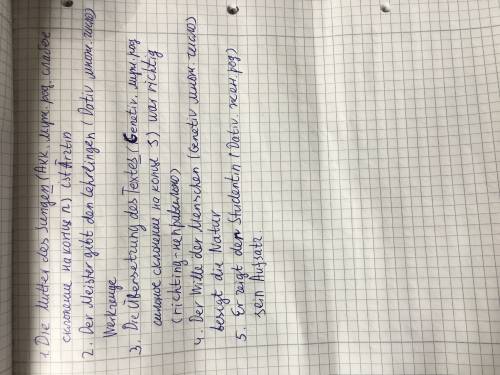 1. Die Mutter des Jungen (Akk. мужс. род. слабое
склонение на конце n.) ist Ärztin
2. Der Meister gibt den Lehrlingen (Dativ множ. число)
Werkzeuge
3. Die Übersetzung des Textes (Genetiv. мужс. род
сильное склонение на конце s) war richtig
(richting - неправильно)
4. Der Wille der Menschen (Genetiv множ. число)
besigt die Natur
5. Er zeigt der Studentin (Dativ. жен. род)
sein Aufsatz